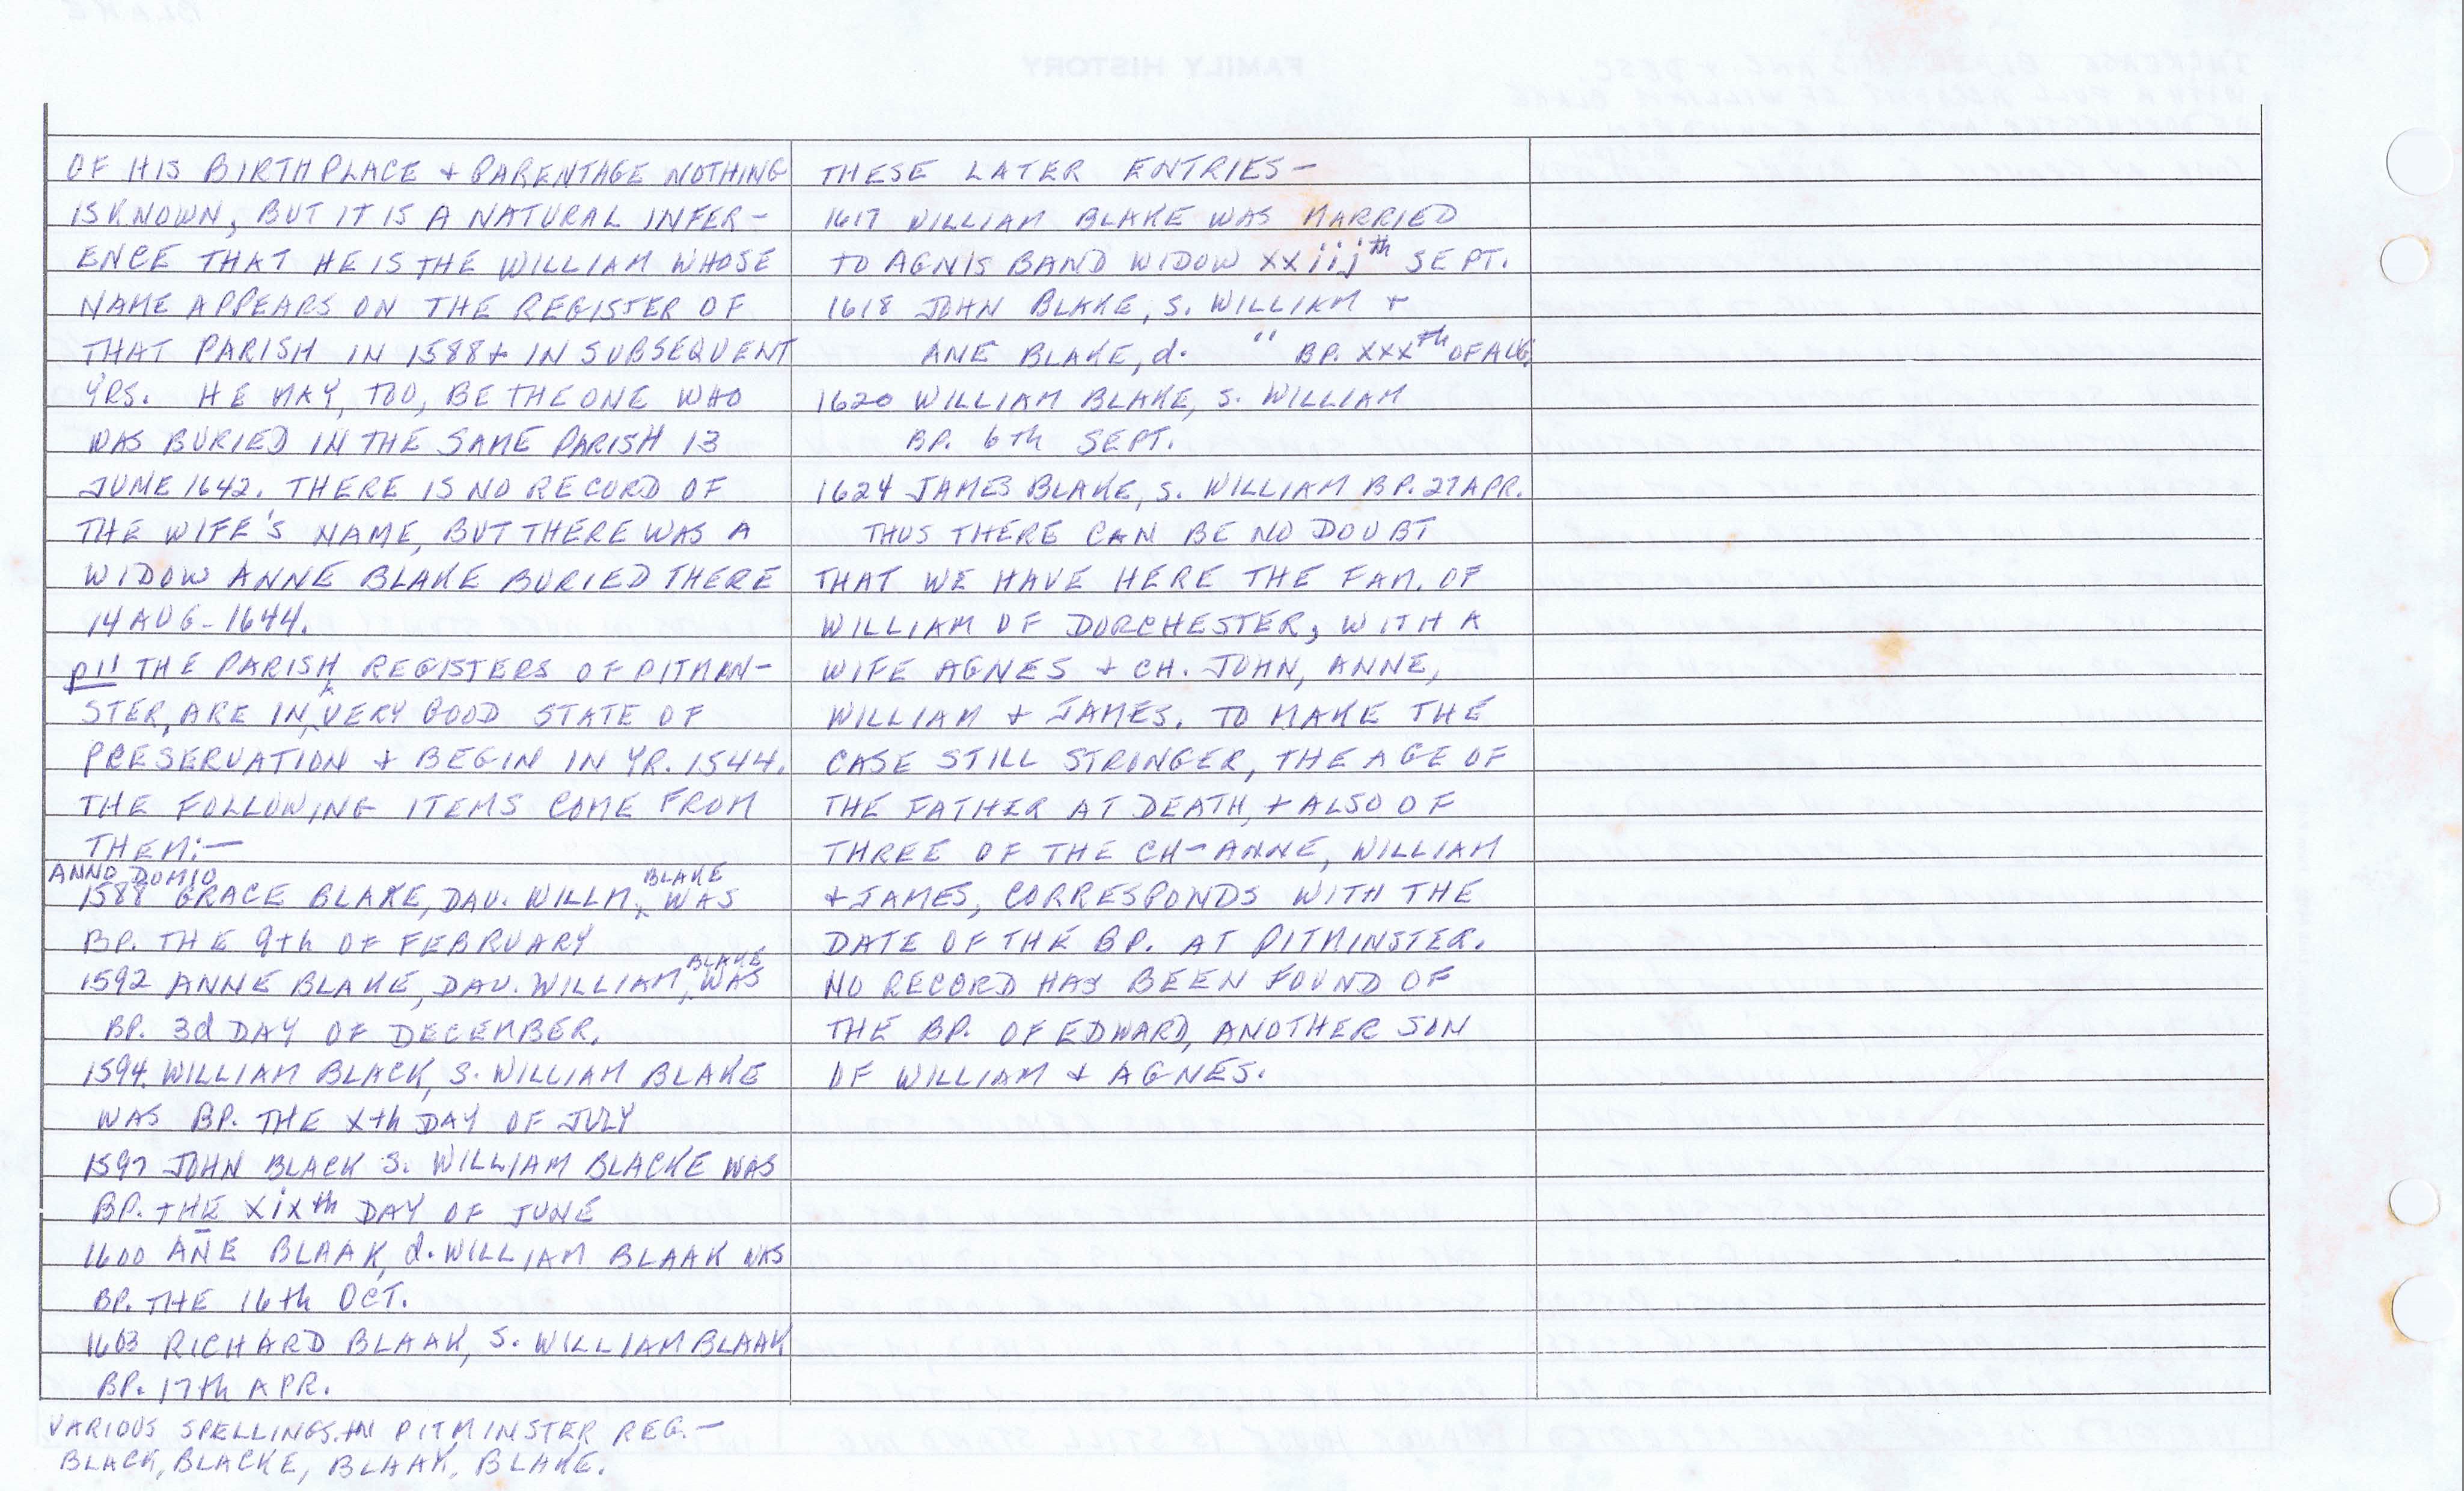 OF HIS BIRTHPLACE + PARENTAGE NOTHING
IS KNOWN, BUT IT IS A NATURAL INFER-
ENCE THAT HE IS THE WILLIAM WHOSE
NAME APPEARS ON THE REGISTER OF
THAT PARISH IN 1588 + IN SUBSEQUENT
YRS. HE MAY, TOO, BE THE ONE WHO
WAS BURIED IN THE SAME PARISH 13
JUNE 1642. THERE IS NO RECORD OF
THE WIFE'S NAME, BUT THERE WAS A
WIDOW ANNE BLAKE BURIED THERE
14 AUG-1644.
p11 THE PARISH REGISTERS OF PITMIN-
STER, ARE IN VERY GOOD STATE OF
PRESERVATION + BEGIN IN YR. 1544.
THE FOLLOWING ITEMS COME FROM
THEM:-
ANNO DOMIO
1588 GRACE BLAKE, DAU. WILLM. BLAKE WAS
BP. THE 9th OF FEBRUARY
1592 ANNE BLAKE, DAU. WILLIAM BLAKE, WAS
BP. 3d DAY OF DECEMBER.
1594. WILLIAM BLACK, S. WILLIAM BLAKE
WAS BP. THE Xth DAY OF JULY
1597 JOHN BLACK S. WILLIAM BLACKE WAS
BP. THE xixth DAY OF JUNE
1600 AÑE BLAAK, d. WILLIAM BLAAK WAS
BP. THE 16th OCT.
1603 RICHARD BLAAK, S. WILLIAM BLAAK
BP. 17th APR.
VARIOUS SPELLINGS IN PITMINSTER REG.-
BLACK, BLACKE, BLAAK, BLAKE.
THESE LATER ENTRIES-
1617 WILLIAM BLAKE WAS MARRIED
TO AGNIS BAND WIDOW xxiijth SEPT.
1618 JOHN BLAKE, S. WILLIAM +
ANE BLAKE, d. " BP. XXXth OF AUG.
1620 WILLIAM BLAKE, S. WILLIAM
BP. 6th SEPT.
1624 JAMES BLAKE, S. WILLIAM BP. 27 APR.
THUS THERE CAN BE NO DOUBT
THAT WE HAVE HERE THE FAM. OF
WILLIAM OF DORCHESTER, WITH A
WIFE AGNES + CH. JOHN, ANNE,
WILLIAM + JAMES. TO MAKE THE
CASE STILL STRONGER, THE AGE OF
THE FATHER AT DEATH, + ALSO OF
THREE OF THE CH-ANNE, WILLIAM
+ JAMES, CORRESPONDS WITH THE
DATE OF THE BP. AT PITMINSTER.
NO RECORD HAS BEEN FOUND OF
THE BP. OF EDWARD, ANOTHER SON
OF WILLIAM + AGNES.